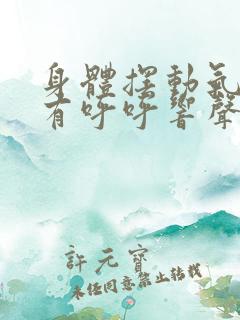 身體擺動氣
有呼呼響聲
許元寶
未经同意禁止转载